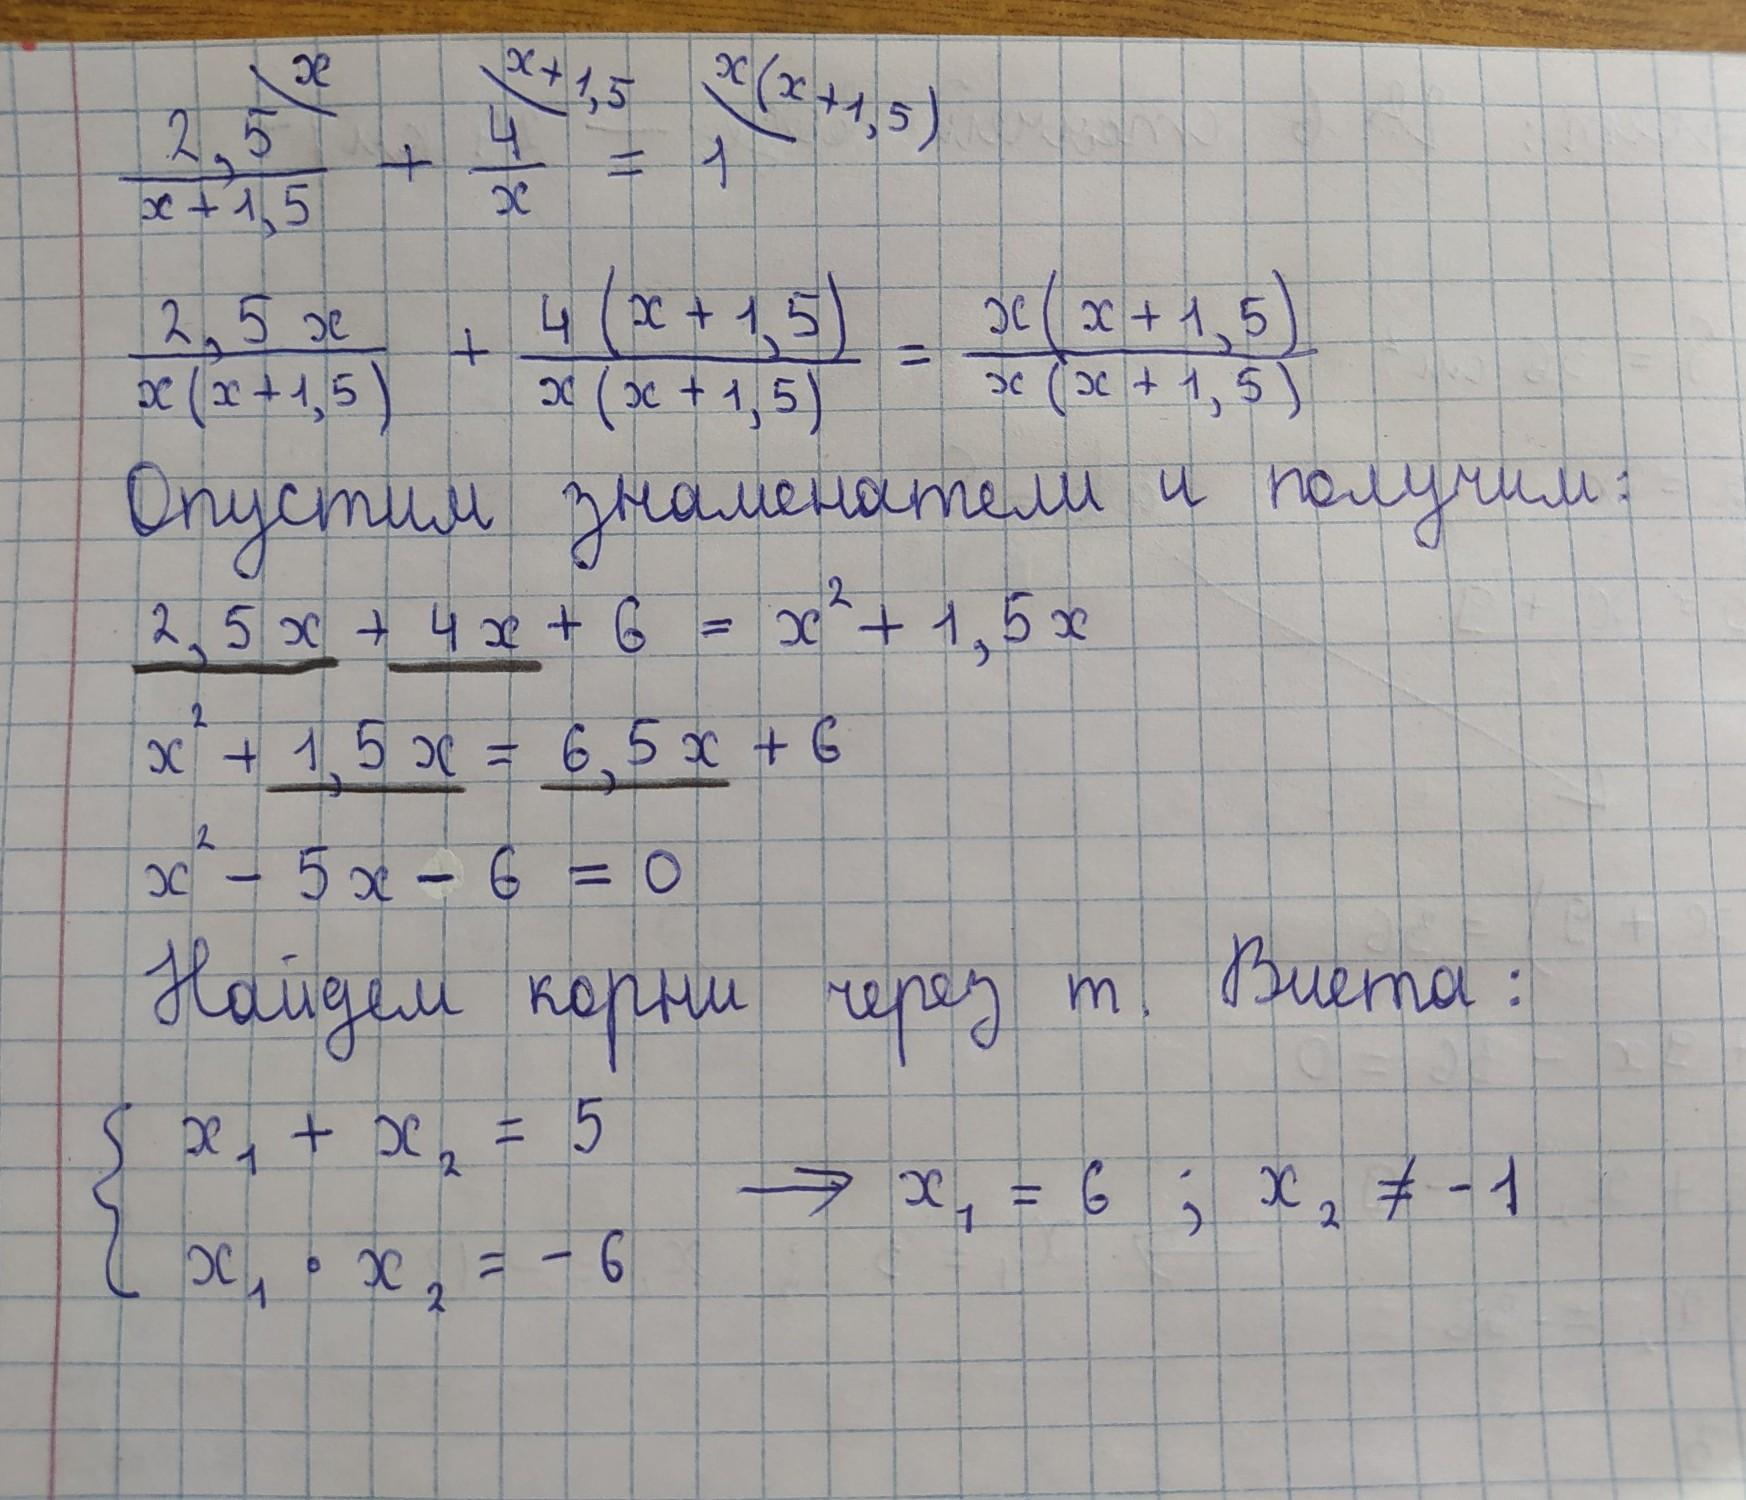 x x+1,5 x(x+1,5)
2,5/(x+1,5) + 4/x = 1
2,5x/(x(x+1,5)) + 4(x+1,5)/(x(x+1,5)) = x(x+1,5)/(x(x+1,5))
Опустим знаменатели и получим:
2,5x + 4x + 6 = x² + 1,5x
x² + 1,5x = 6,5x + 6
x² - 5x - 6 = 0
Найдем корни через т. Виета:
{ x₁ + x₂ = 5
→ x₁ = 6 ; x₂ ≠ -1
x₁ · x₂ = -6